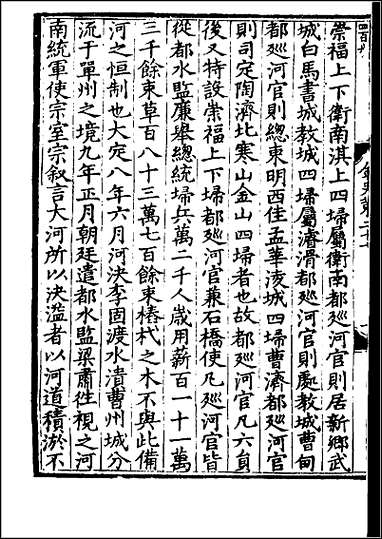 崇福上下衛南淇上四埽屬衛南都廵河官則居新鄉武
城白馬書城教城四埽屬濬滑都廵河官則處教城曹甸
都廵河官則總東明西佳孟華淩城四埽曹濟都廵河官
則司定陶濟北寒山金山四埽者也故都廵河官凡六員
後又特設崇福上下埽都廵河官兼石橋使凡廵河官皆
從都水監廉舉總統埽兵萬二千人歲用薪百一十一萬
三千餘束草百八十三萬七百餘束樁杙之木不與此備
河之恒制也大定八年六月河決李固渡水潰曹州城分
流于單州之境九年正月朝廷遣都水監梁肅往視之河
南統軍使宗室宗敘言大河所以決溢者以河道積淤不